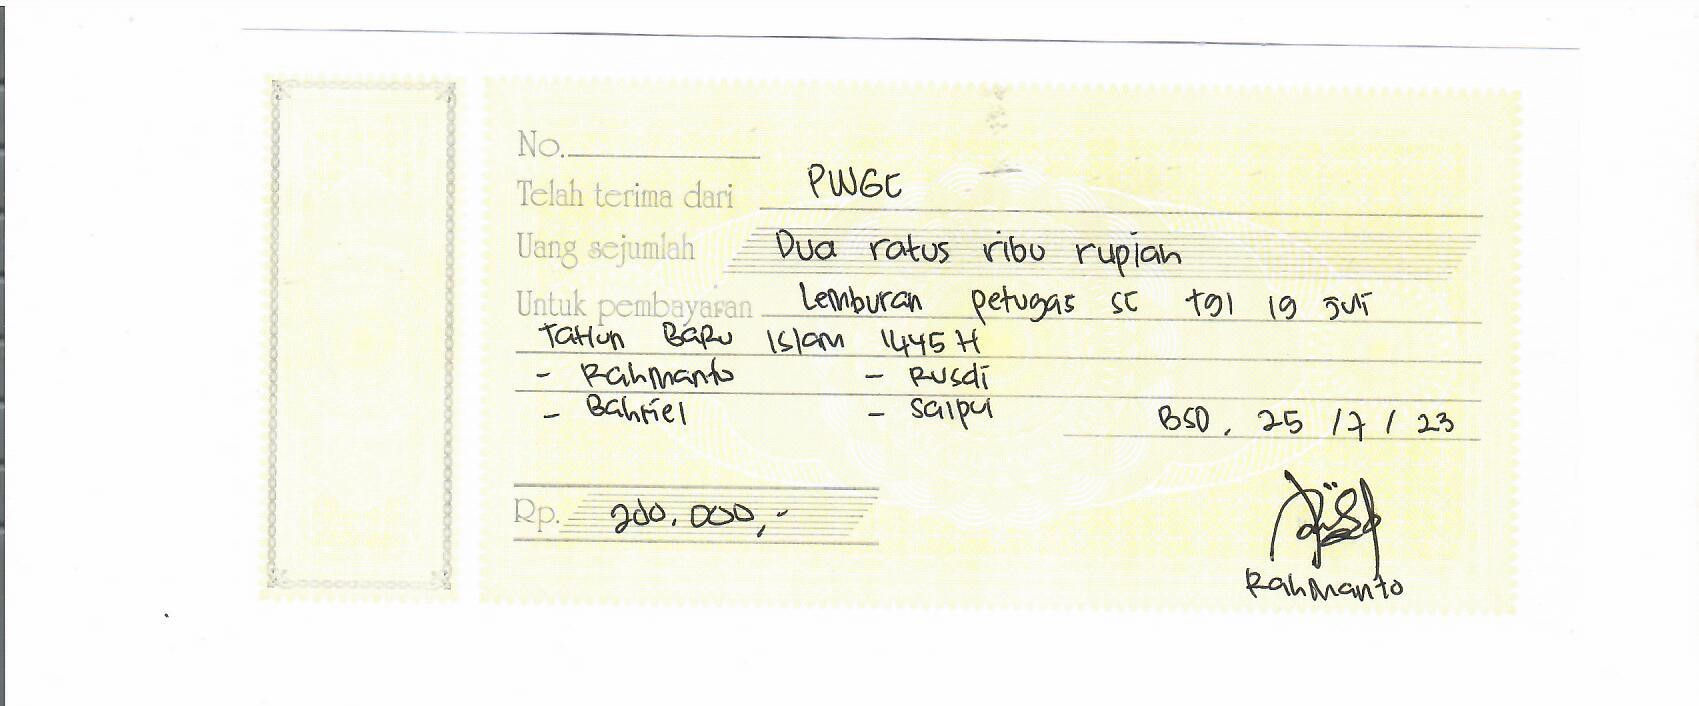 No.
Telah terima dari PWGC
Uang sejumlah Dua ratus ribu rupiah
Untuk pembayaran Lemburan petugas SC tgl 19 Juli
Tahun Baru Islam 1445 H
- Rahmanto - Rusdi
- Bahriel - Saipul
BSD, 25 / 7 / 23
Rp. 200.000,-
Rahmanto